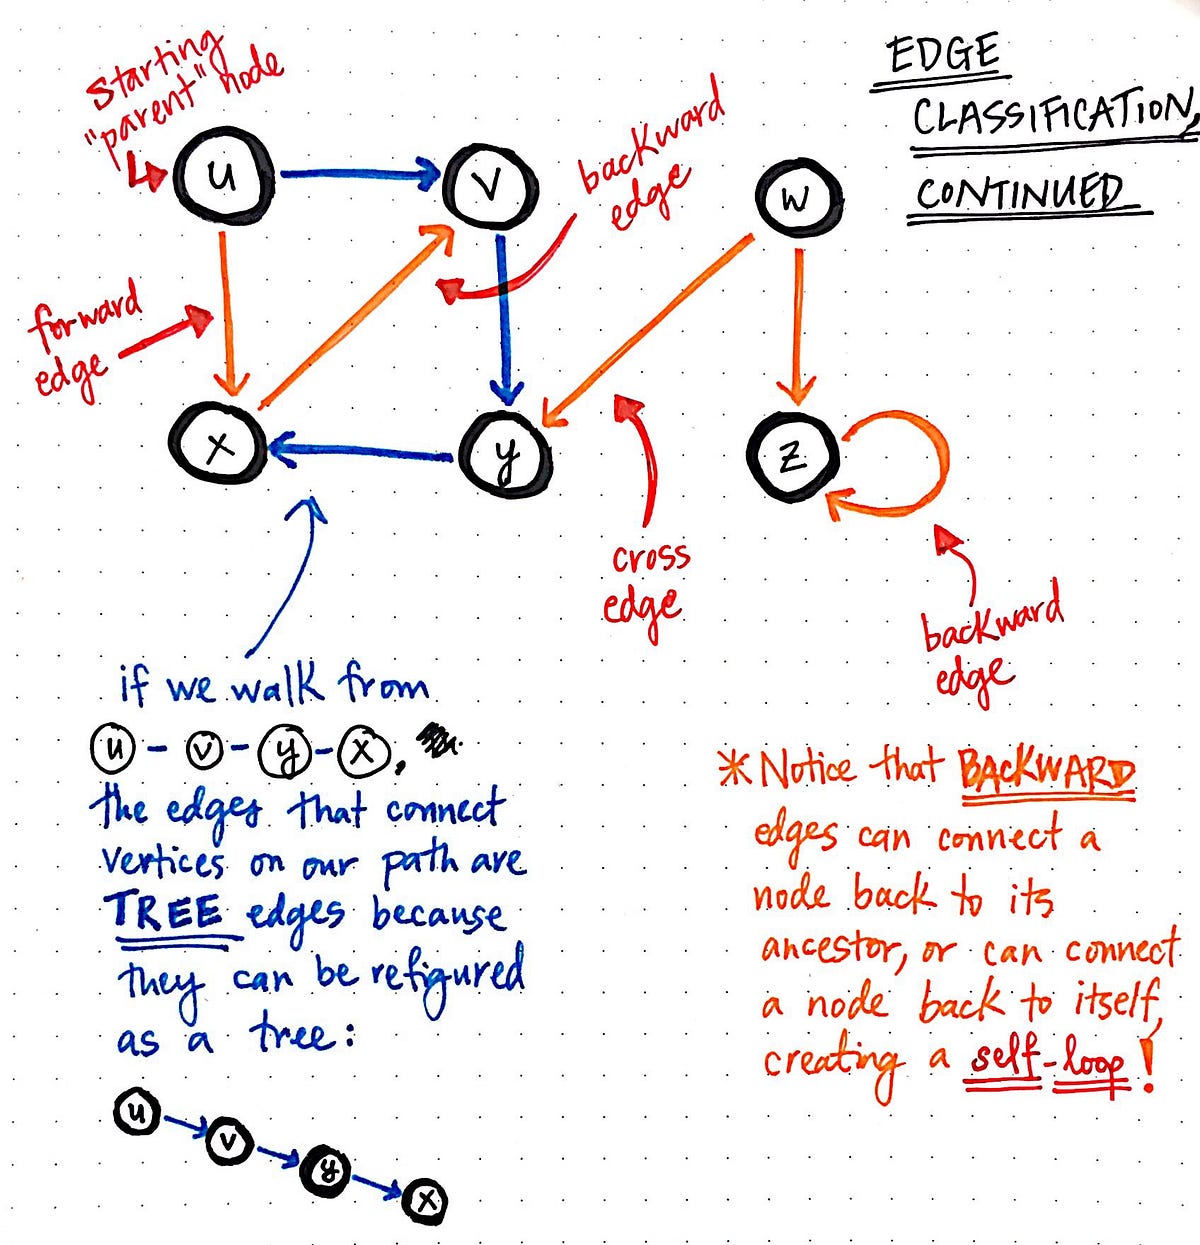 EDGE
CLASSIFICATION,
CONTINUED
starting
"parent" node
u
v
w
backward
edge
forward
edge
x
y
z
cross
edge
backward
edge
if we walk from
u - v - y - x,
the edges that connect
vertices on our path are
TREE edges because
they can be refigured
as a tree:
u
v
y
x
* Notice that BACKWARD
edges can connect a
node back to its
ancestor, or can connect
a node back to itself,
creating a self-loop!